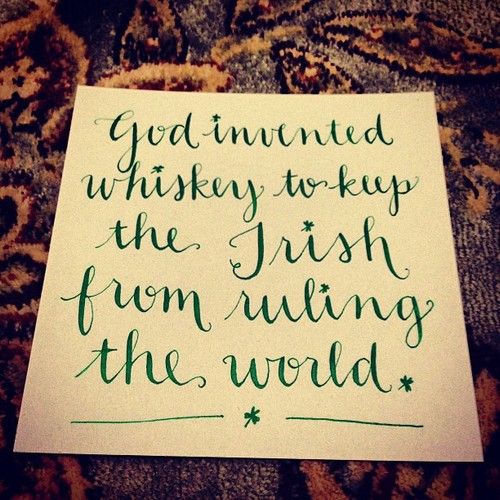 God invented
whiskey to keep
the Irish
from ruling
the world.